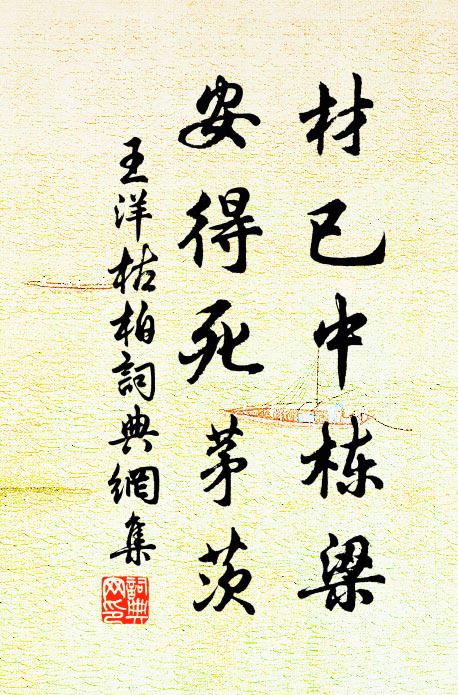 材已中栋梁
安得死茅茨
王洋枯柏詞典網集
詞典网印